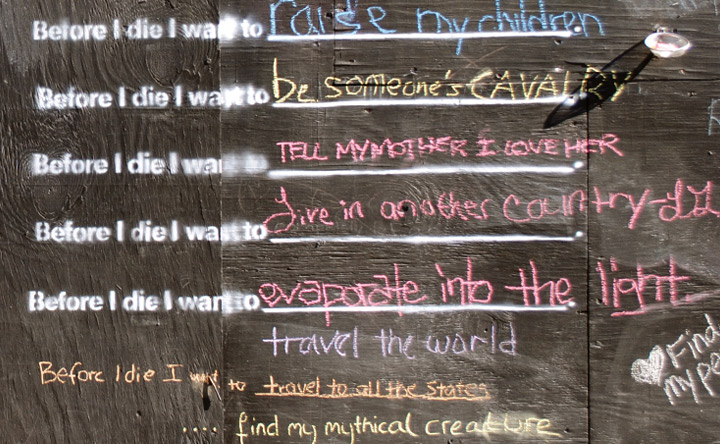 Before I die I want to raise my children
Before I die I want to be someone's CAVALRY
Before I die I want to TELL MY MOTHER I LOVE HER
Before I die I want to live in another country
Before I die I want to evaporate into the light
travel the world
Before I die I want to travel to all the states
Find
my
.... find my mythical creature